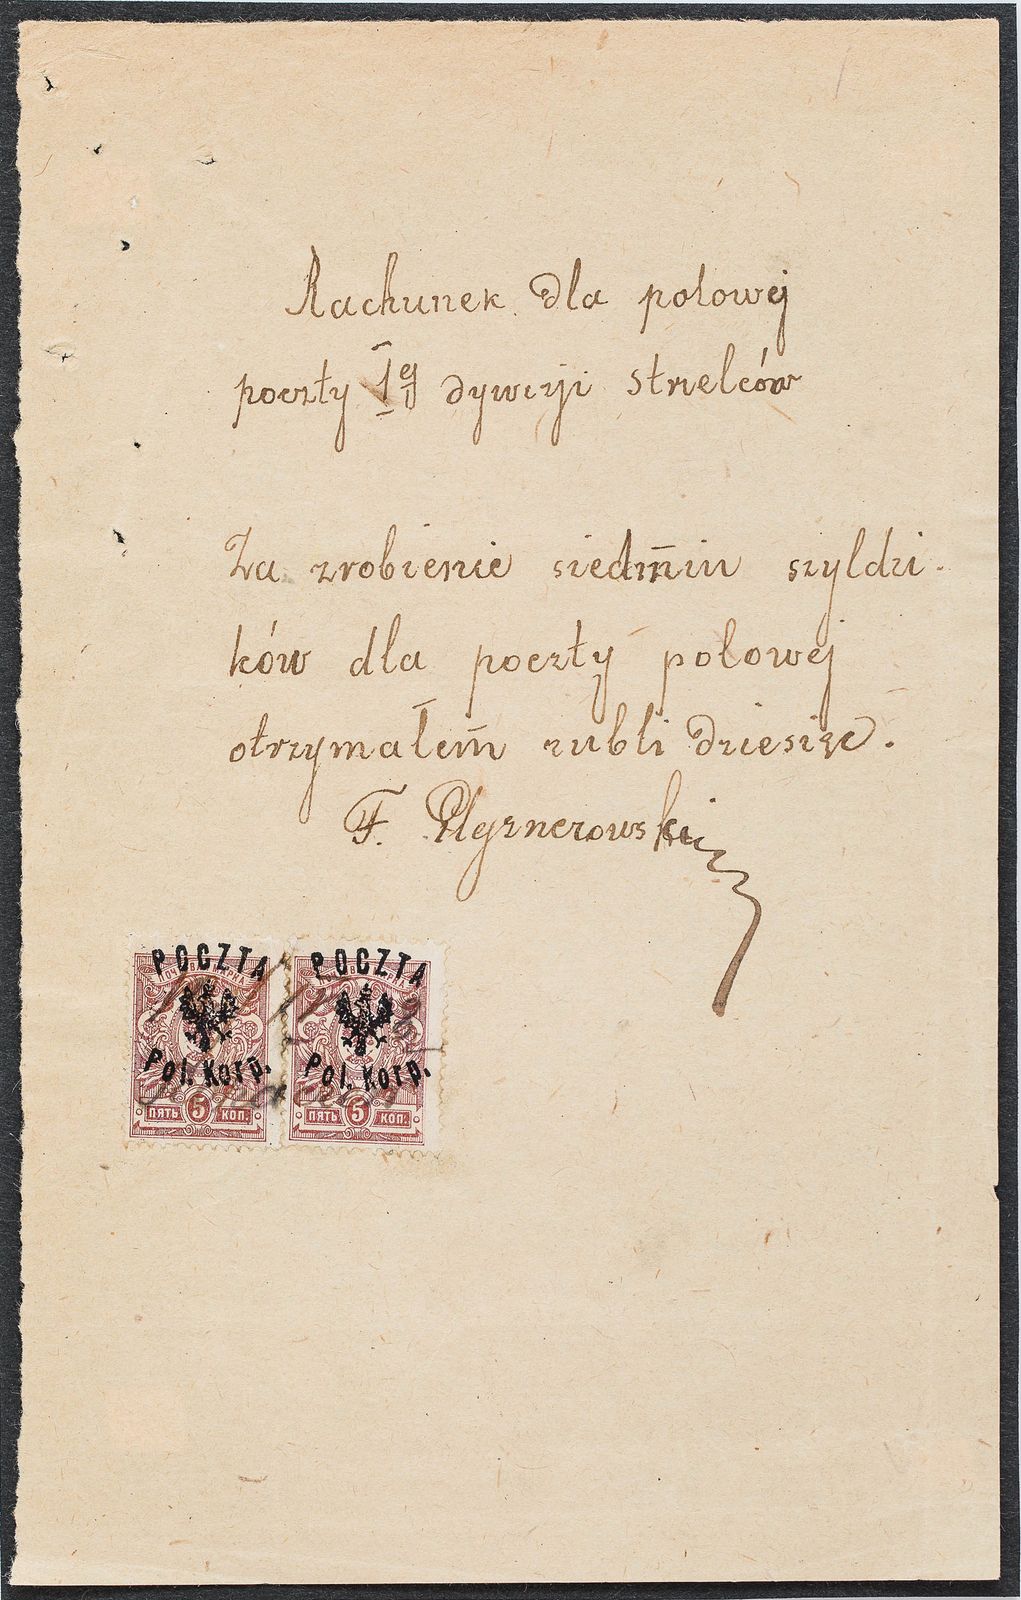 Rachunek dla polowej
poczty 1ej dywizji strzelców
Za zrobienie siedmiu szyldzi-
ków dla poczty polowej
otrzymałem rubli dziesięc.
F.
POCZTA POCZTA
Pol. Korp. Pol. Korp.
ПЯТЬ 5 КОП. ПЯТЬ 5 КОП.